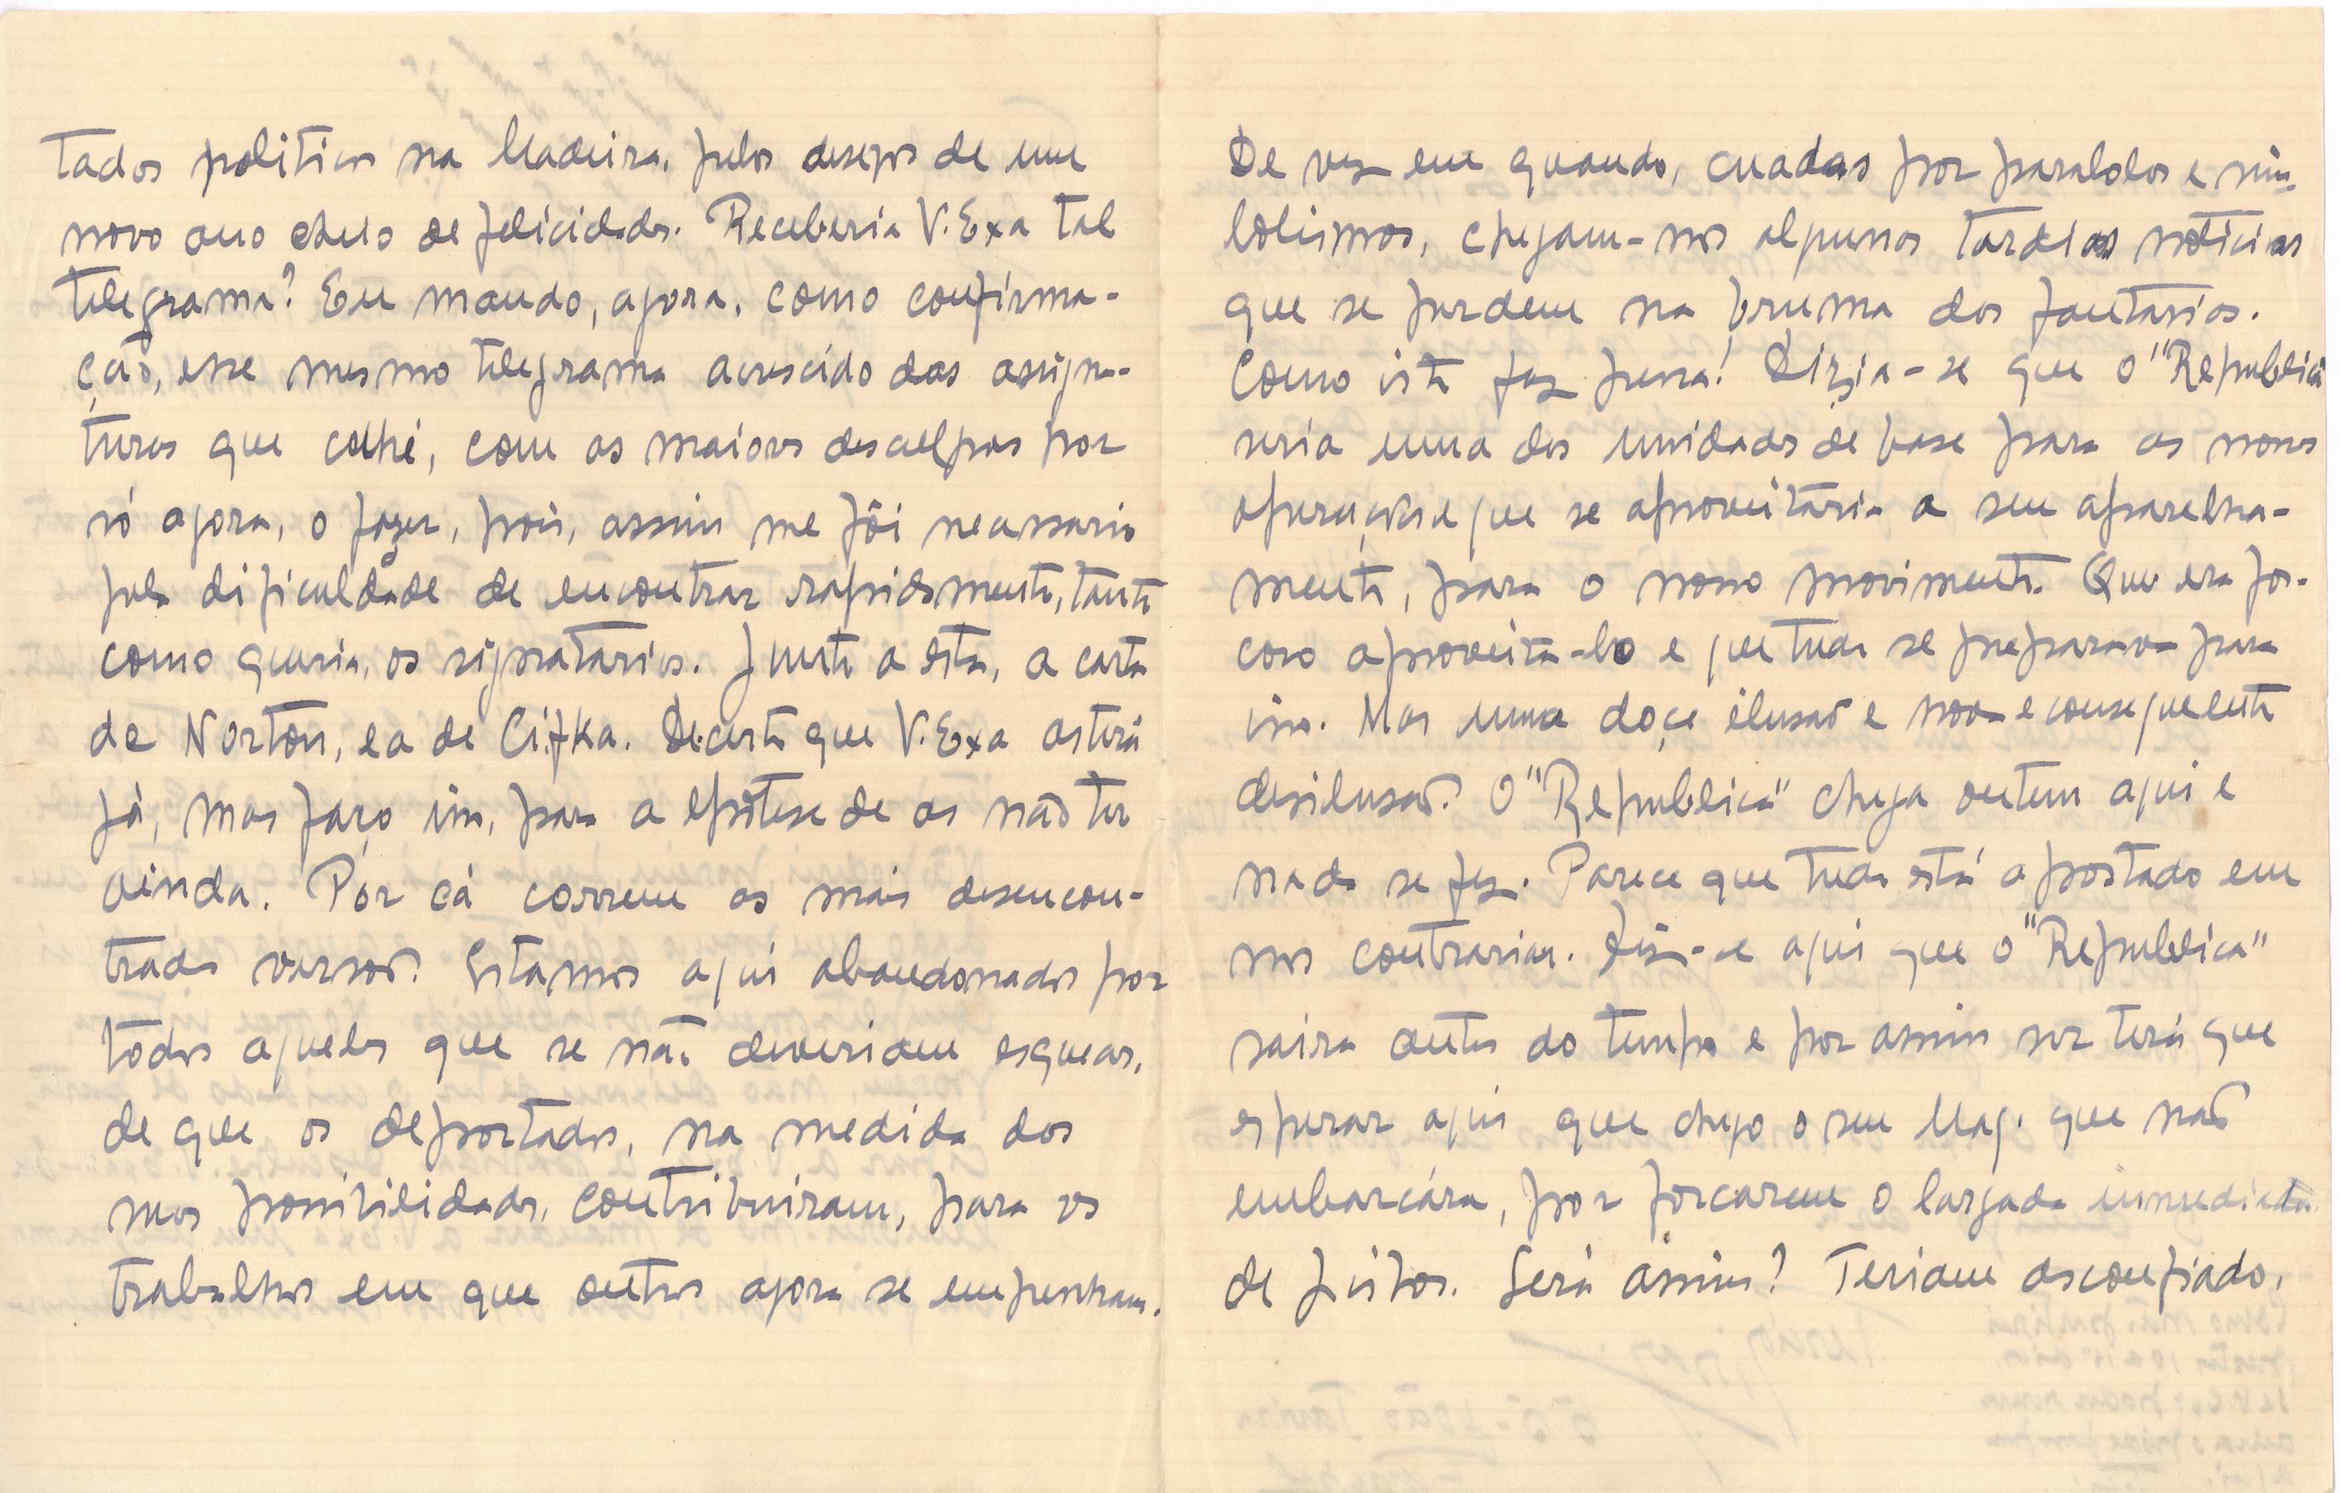 tados politicos na Madeira, pelos desejos de um
novo ano cheio de felicidades. Receberia V. Exa tal
telegrama? Eu mando, agora, como confirma-
ção, esse mesmo telegrama acrescido das assigna-
turas que colhi, com as maiores desculpas por
só agora, o fazer, pois, assim me fôi necessario
pela dificuldade de encontrar rapidamente, tanto
como queria, os signatarios. Junto a esta, a carta
de Norton, e a de Cifka. Decerto que V. Exa as terá
já, mas faço isso, para a epótese de as não ter
ainda. Pór cá correm as mais desencon-
tradas versões. Estamos aqui abandonados por
todos aqueles que se não deveriam esquecer,
de que os deportados, na medida das
suas possibilidades, contribuiram, para os
trabalhos em que outros agora se empenham.
De vez em quando, cuadas por paralolos e sim-
bolismos, chegam-nos algumas tardias noticias
que se perdem na bruma dos fantasios.
Como isto faz pena! Dizia-se que o "Republica
seria uma das unidades de base para as nossas
operações e que se aproveitaria o seu aparelha-
mento, para o nosso movimento. Que era for-
çoso aproveita-lo e que tudo se preparava para
isso. Mas uma doce ilusão e nova e consequente
desilusão. O "Republica" chega ontem aqui e
nada se fez. Parece que tudo está apostado em
nos contrariar. Diz-se aqui que o "Republica"
saira antes do tempo e por assim ser terá que
esperar aqui que chegue o seu Mag. que não
embarcára, por forçarem a largada immediata
de Lisboa. Será assim? Teriam desconfiado,